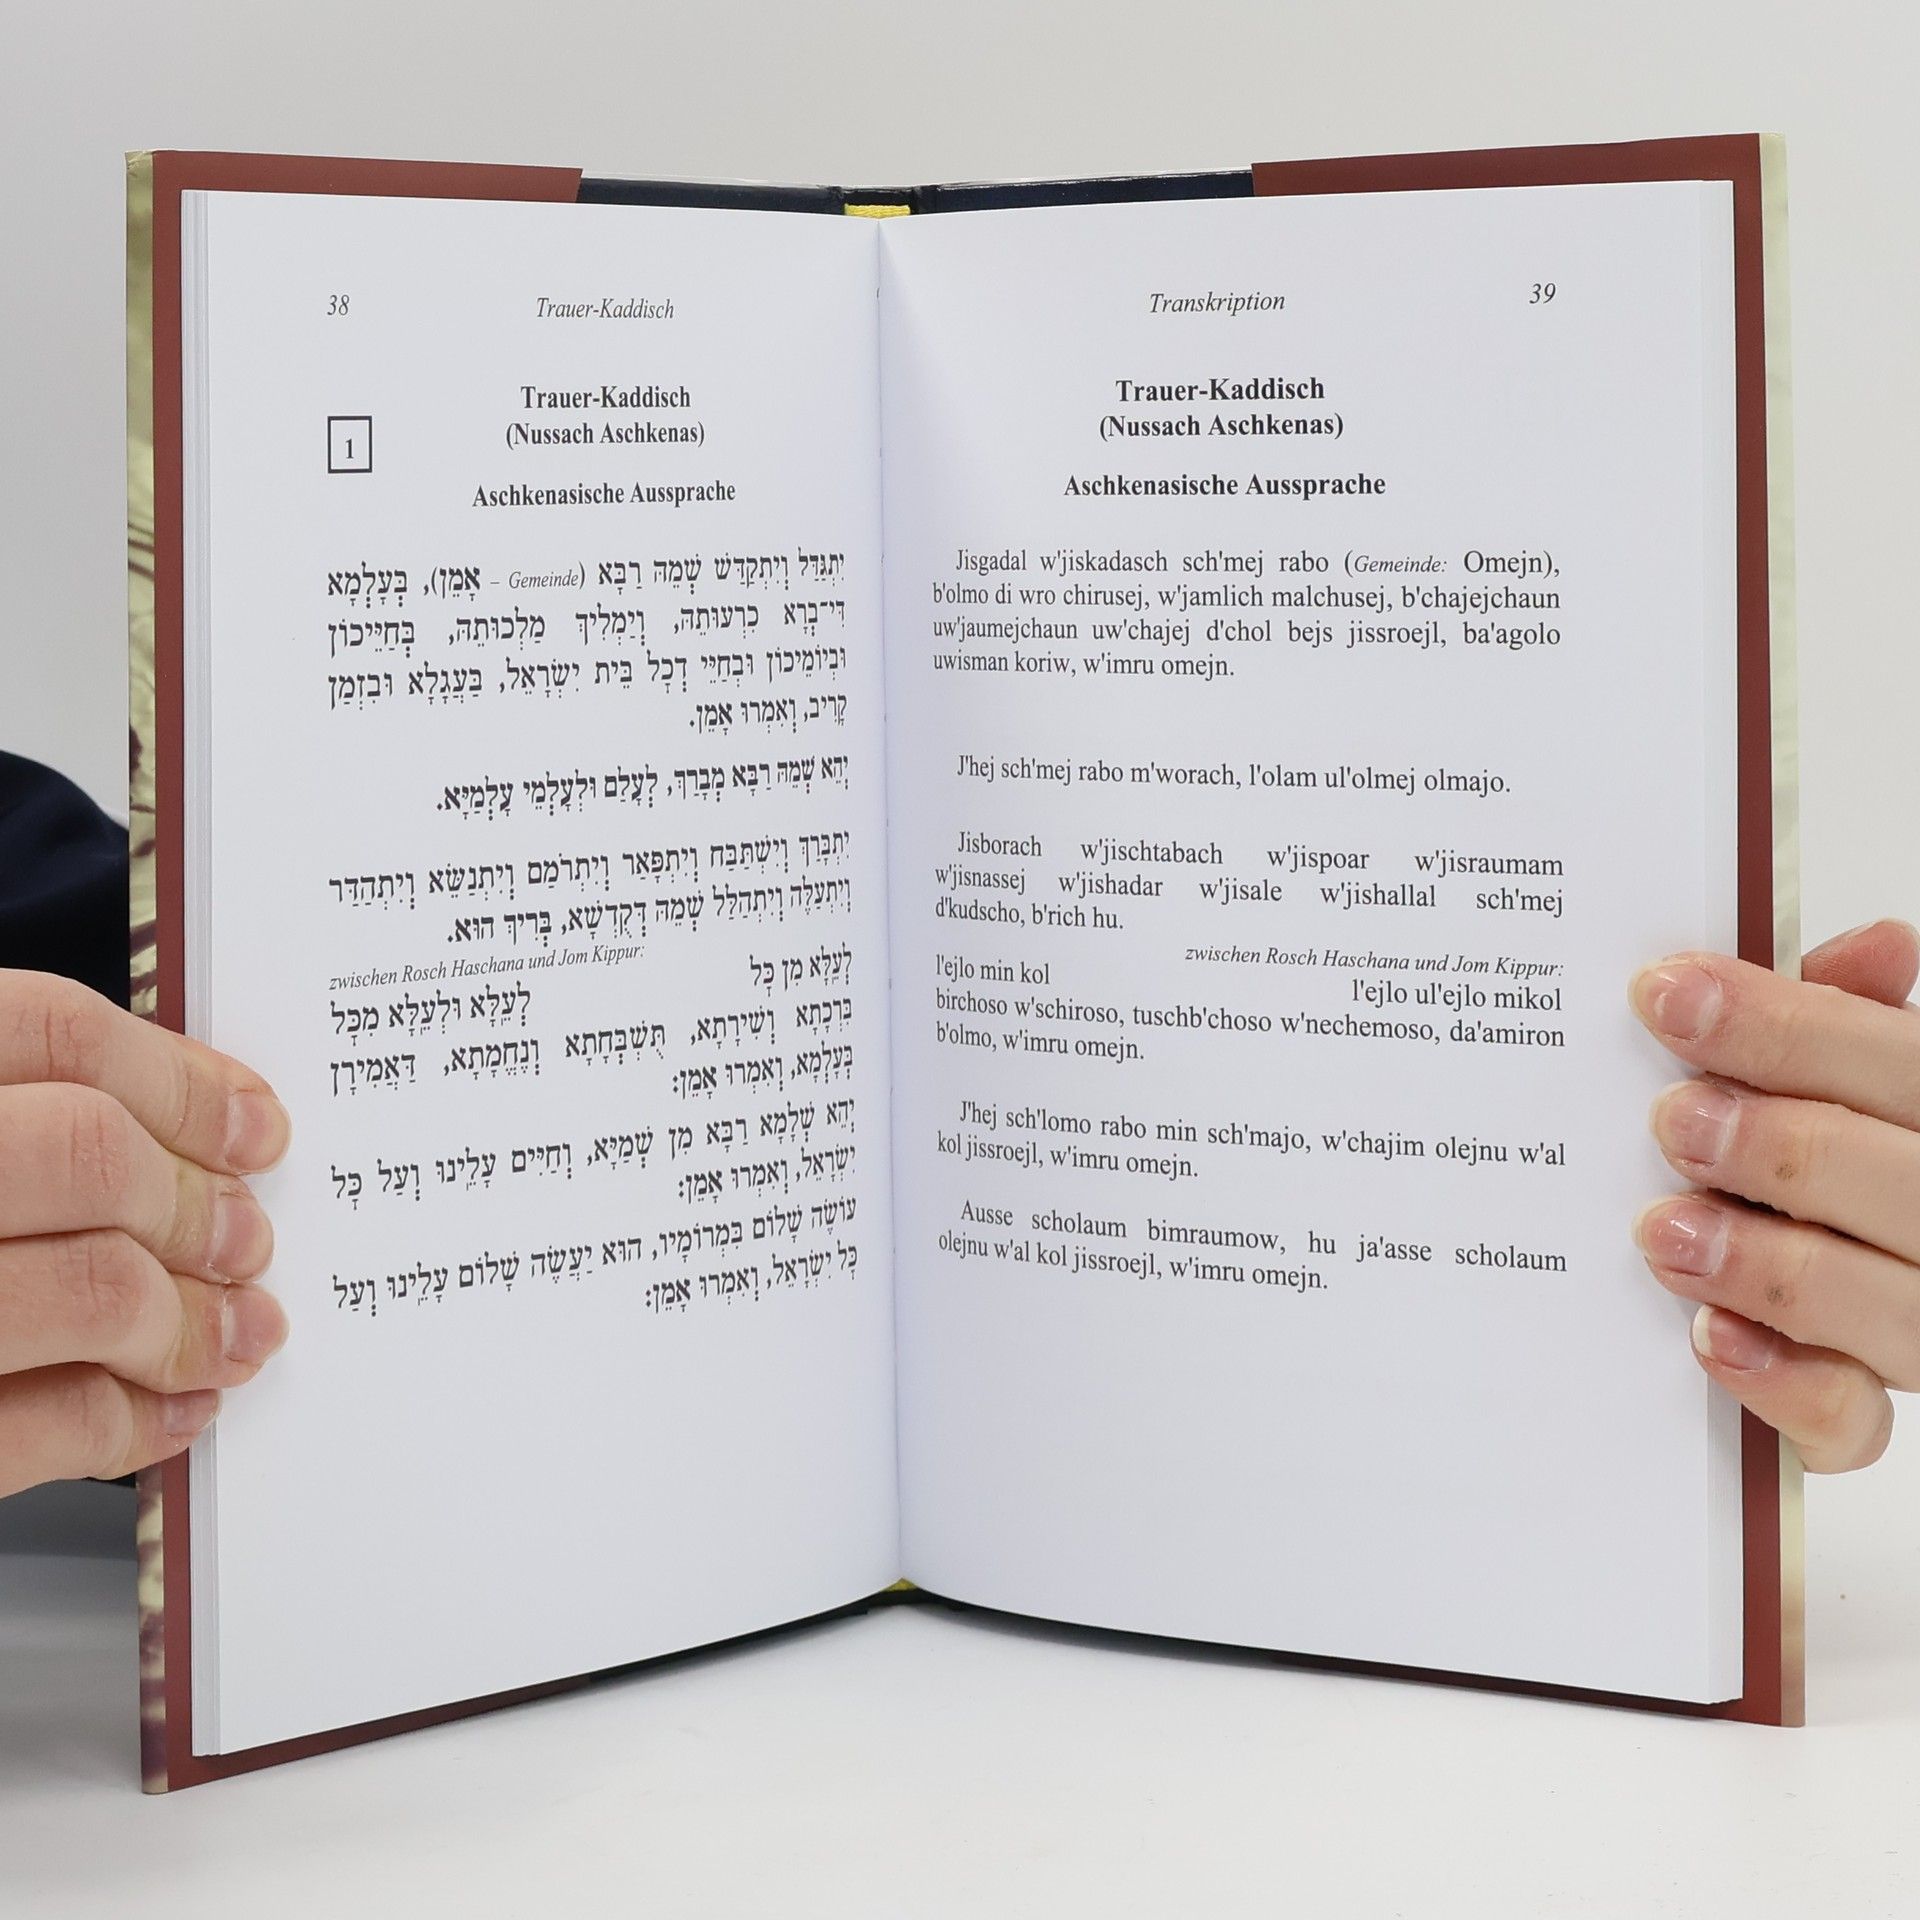 38
Trauer-Kaddisch
Trauer-Kaddisch
(Nussach Aschkenas)
1
Aschkenasische Aussprache
יִתְגַּדַּל וְיִתְקַדַּשׁ שְׁמֵהּ רַבָּא (Gemeinde – אָמֵן), בְּעָלְמָא
דִּי־בְרָא כִרְעוּתֵהּ, וְיַמְלִיךְ מַלְכוּתֵהּ, בְּחַיֵּיכוֹן
וּבְיוֹמֵיכוֹן וּבְחַיֵּי דְכָל בֵּית יִשְׂרָאֵל, בַּעֲגָלָא וּבִזְמַן
קָרִיב, וְאִמְרוּ אָמֵן.
יְהֵא שְׁמֵהּ רַבָּא מְבָרַךְ, לְעָלַם וּלְעָלְמֵי עָלְמַיָּא.
יִתְבָּרַךְ וְיִשְׁתַּבַּח וְיִתְפָּאַר וְיִתְרֹמַם וְיִתְנַשֵּׂא וְיִתְהַדַּר
וְיִתְעַלֶּה וְיִתְהַלַּל שְׁמֵהּ דְּקֻדְשָׁא, בְּרִיךְ הוּא.
zwischen Rosch Haschana und Jom Kippur:
לְעֵלָּא מִן כָּל
לְעֵלָּא וּלְעֵלָּא מִכָּל
בִּרְכָתָא וְשִׁירָתָא, תֻּשְׁבְּחָתָא וְנֶחֱמָתָא, דַּאֲמִירָן
בְּעָלְמָא, וְאִמְרוּ אָמֵן:
יְהֵא שְׁלָמָא רַבָּא מִן שְׁמַיָּא, וְחַיִּים עָלֵינוּ וְעַל כָּל
יִשְׂרָאֵל, וְאִמְרוּ אָמֵן:
עוֹשֶׂה שָׁלוֹם בִּמְרוֹמָיו, הוּא יַעֲשֶׂה שָׁלוֹם עָלֵינוּ וְעַל
כָּל יִשְׂרָאֵל, וְאִמְרוּ אָמֵן:
Transkription
39
Trauer-Kaddisch
(Nussach Aschkenas)
Aschkenasische Aussprache
Jisgadal w'jiskadasch sch'mej rabo (Gemeinde: Omejn),
b'olmo di wro chirusej, w'jamlich malchusej, b'chajejchaun
uw'jaumejchaun uw'chajej d'chol bejs jissroejl, ba'agolo
uwisman koriw, w'imru omejn.
J'hej sch'mej rabo m'worach, l'olam ul'olmej olmajo.
Jisborach w'jischtabach w'jispoar w'jisraumam
w'jisnassej w'jishadar w'jisale w'jishallal sch'mej
d'kudscho, b'rich hu.
zwischen Rosch Haschana und Jom Kippur:
l'ejlo min kol
l'ejlo ul'ejlo mikol
birchoso w'schiroso, tuschb'choso w'nechemoso, da'amiron
b'olmo, w'imru omejn.
J'hej sch'lomo rabo min sch'majo, w'chajim olejnu w'al
kol jissroejl, w'imru omejn.
Ausse scholaum bimraumow, hu ja'asse scholaum
olejnu w'al kol jissroejl, w'imru omejn.